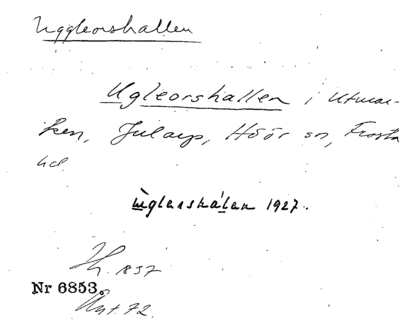 Uggleorshallen
Ugleorshallen i Utmar-
ken, Jularp, Höör sn, Frosta
hd
uglarshálan 1927.
Hh. 1837
Nr 6853.
Ant. 72